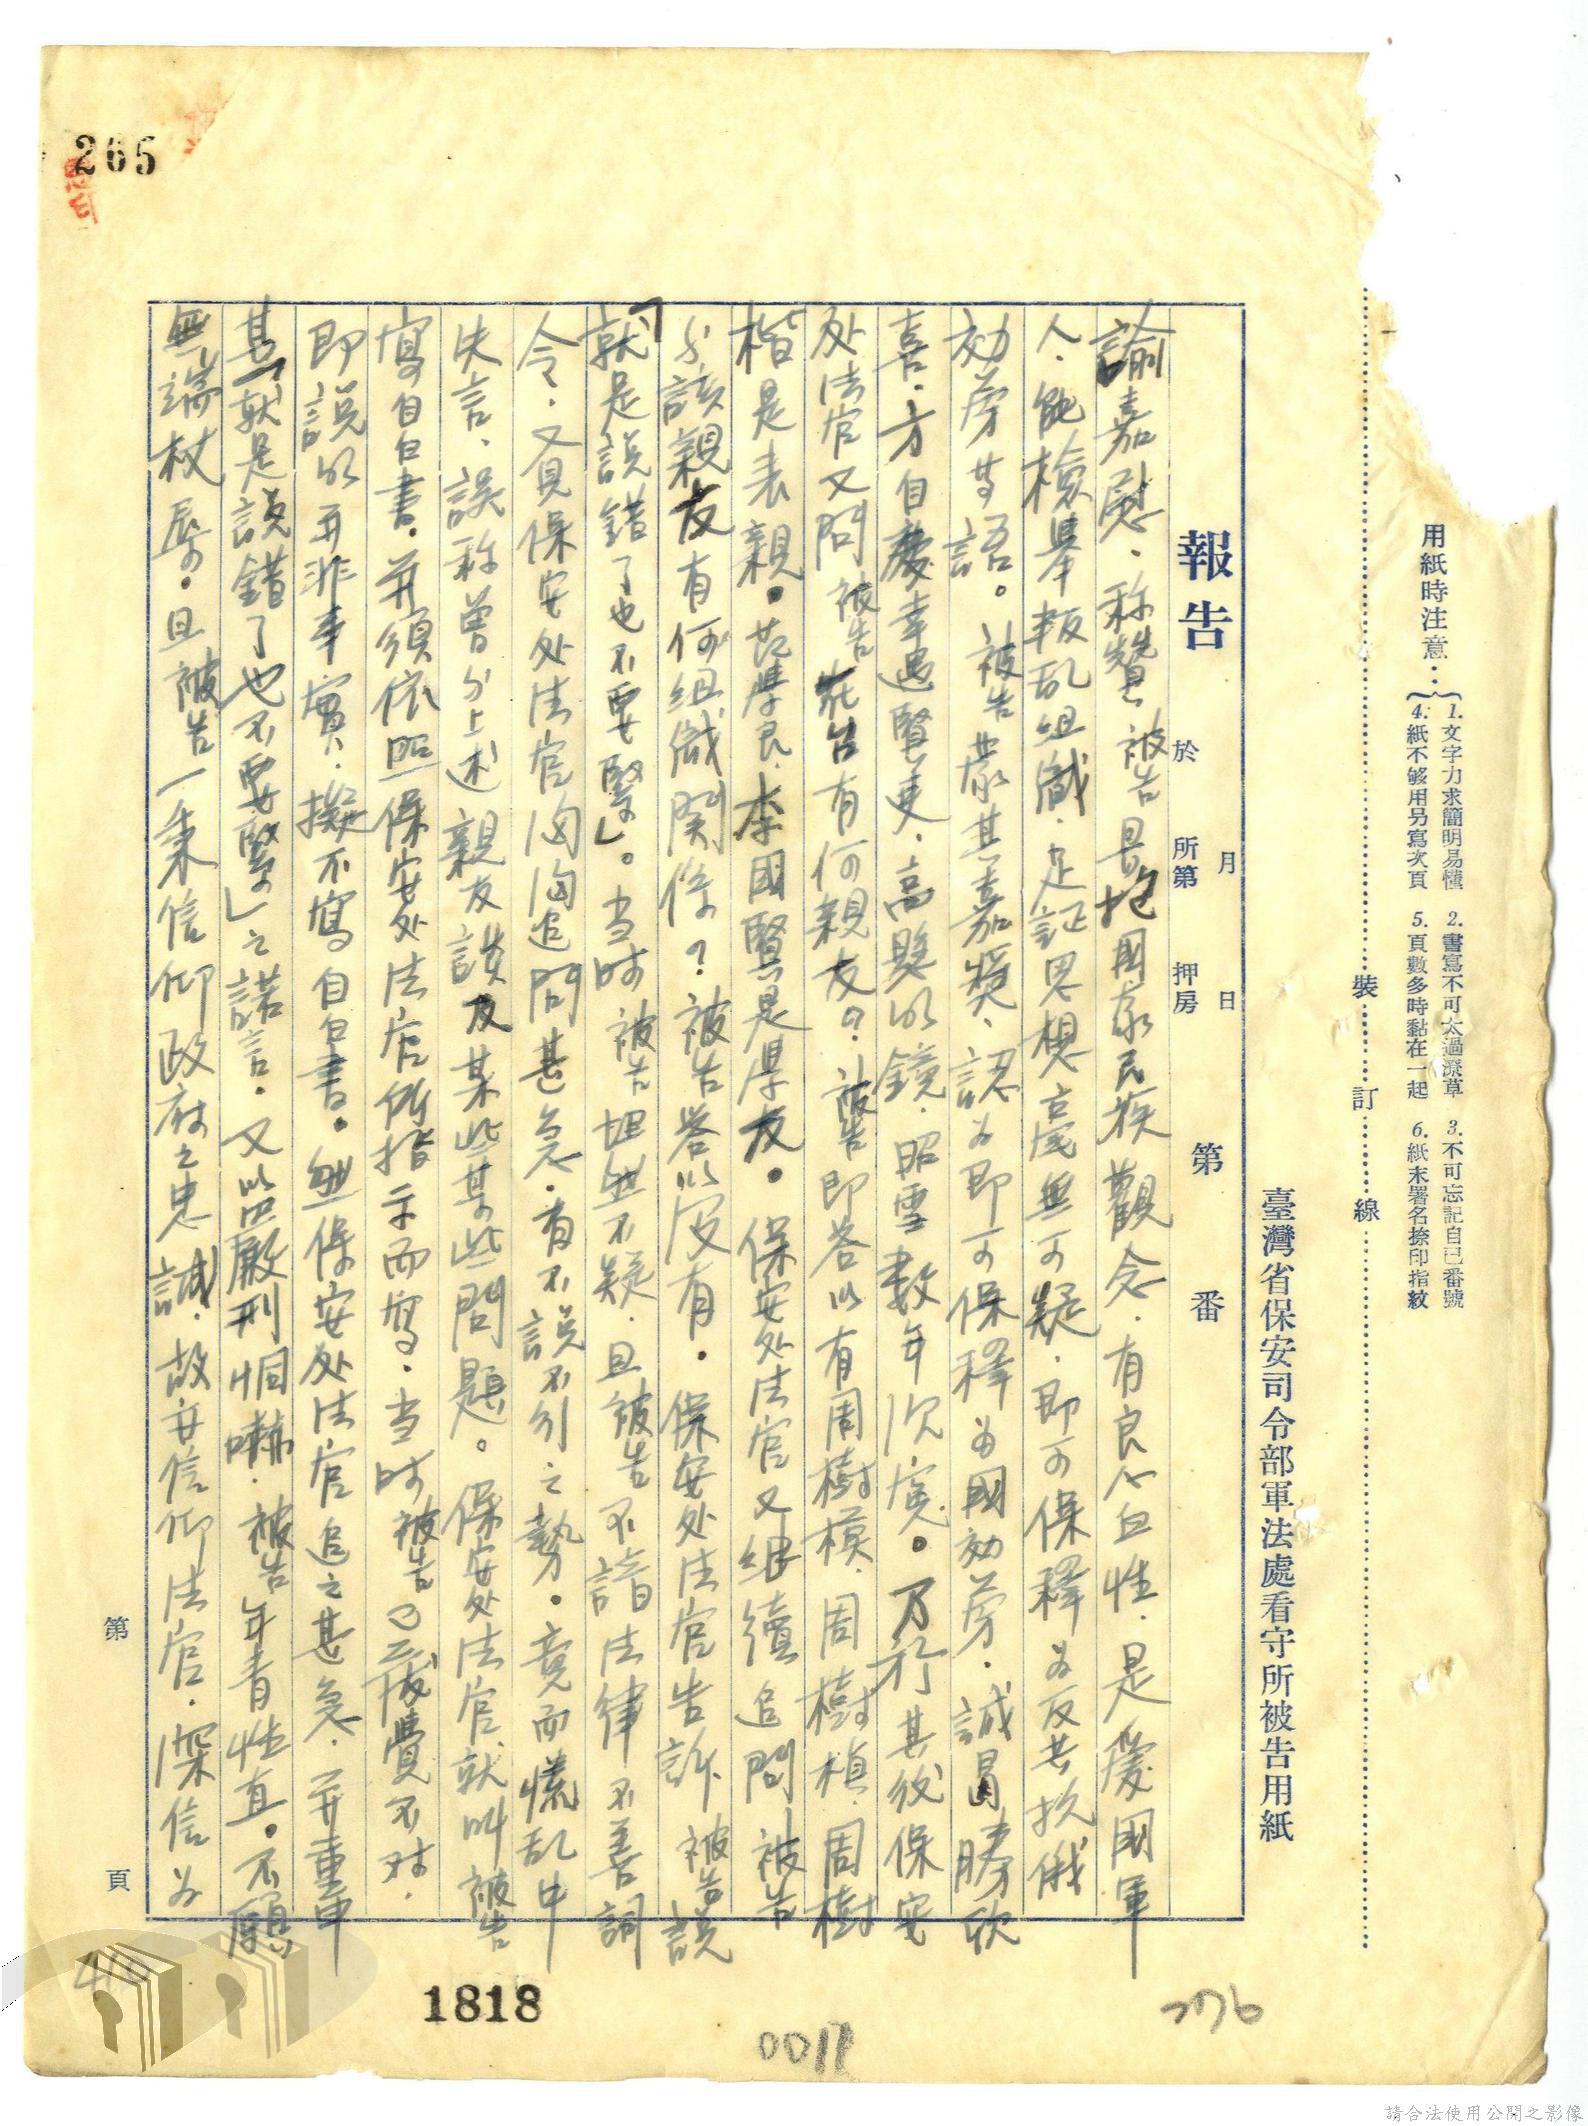 265
用紙時注意：
1. 文字力求簡明易懂　2. 書寫不可太過潦草　3. 不可忘記自己番號
4. 紙不够用另寫次頁　5. 頁數多時黏在一起　6. 紙末署名捺印指紋
裝 訂 線
臺灣省保安司令部軍法處看守所被告用紙
報告　月　日
於　所第　押房　第　番
諭嘉慰、称贊被告是抱國家民族觀念、有良心血性、是愛國軍
人、能檢舉叛乱組織、足証思想高尚無可疑、即可保釋为反共抗俄
効劳等語。被告蒙其嘉獎、認为即可保釋为國効劳、誠昌勝欣
喜、方自慶幸遇賢吏、高懸明鏡、昭雪数年沉寃。乃於其後保安
处法官又問被告在台有何親友？被告即答以有周樹模、周樹楨、周樹
楷是表親。范學良、李國賢是學友。保安处法官又継續追問被告
分該親友有何組織関係？被告答以没有。保安处法官告訴被告説
「就是説錯了也不要緊」。当时被告坦然不疑、且被告不諳法律不善詞
令、又員保安处法官洶洶追問甚急、有不説不列之勢。竟而慌乱中
失言、誤称曾分上述親友談及某些某些問題。保安处法官就叫被告
寫自白書、并須依照保安处法官所指示而寫。当时被告已感覺不对、
即説明並非事實、擬不寫自白書。無保安处法官追之甚急、并重申
其「就是説錯了也不要緊」之諾言。又以严厳刑恫嚇、被告年青性直。不願
無端杖辱。且被告一秉信仰政府之忠誠、故亦信仰法官、深信为
第　頁
1818
0011
276
請合法使用公開之影像